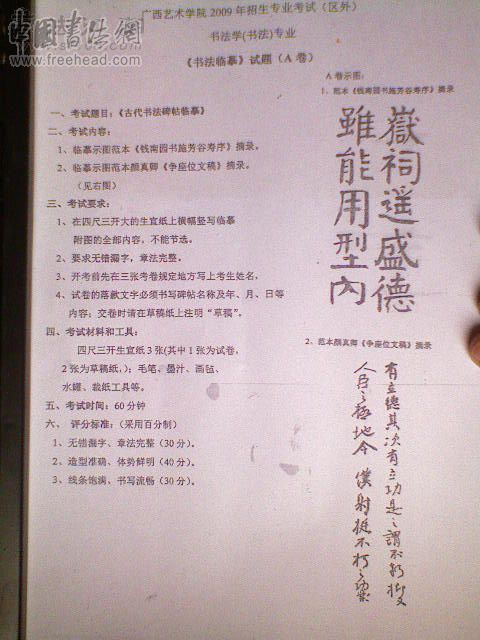 中国书法网
www.freehead.com
广西艺术学院 2009 年招生专业考试（区外）
书法学(书法)专业
《书法临摹》试题（A 卷）
一、考试题目：《古代书法碑帖临摹》
二、考试内容：
1、临摹示图范本《钱南园书施芳谷寿序》摘录。
2、临摹示图范本颜真卿《争座位文稿》摘录。
（见右图）
三、考试要求：
1、在四尺三开大的生宣纸上横幅竖写临摹
附图的全部内容，不能节选。
2、要求无错漏字，章法完整。
3、开考前先在三张考卷规定地方写上考生姓名，
4、试卷的落款文字必须书写碑帖名称及年、月、日等
内容；交卷时请在草稿纸上注明“草稿”。
四、考试材料和工具：
四尺三开生宣纸 3 张(其中 1 张为试卷，
2 张为草稿纸，)；毛笔、墨汁、画毡、
水罐、裁纸工具等。
五、考试时间：60 分钟
六、 评分标准：（采用百分制）
1、无错漏字、章法完整（30 分）。
2、造型准确、体势鲜明（40 分）。
3、线条饱满、书写流畅（30 分）。
A 卷示图：
1、范本《钱南园书施芳谷寿序》摘录
嶽祠遥盛德
雖能用型内
2、范本颜真卿《争座位文稿》摘录
有立德其次有立功是之謂不朽抑又
人臣之極地今僕射挺不朽之功業